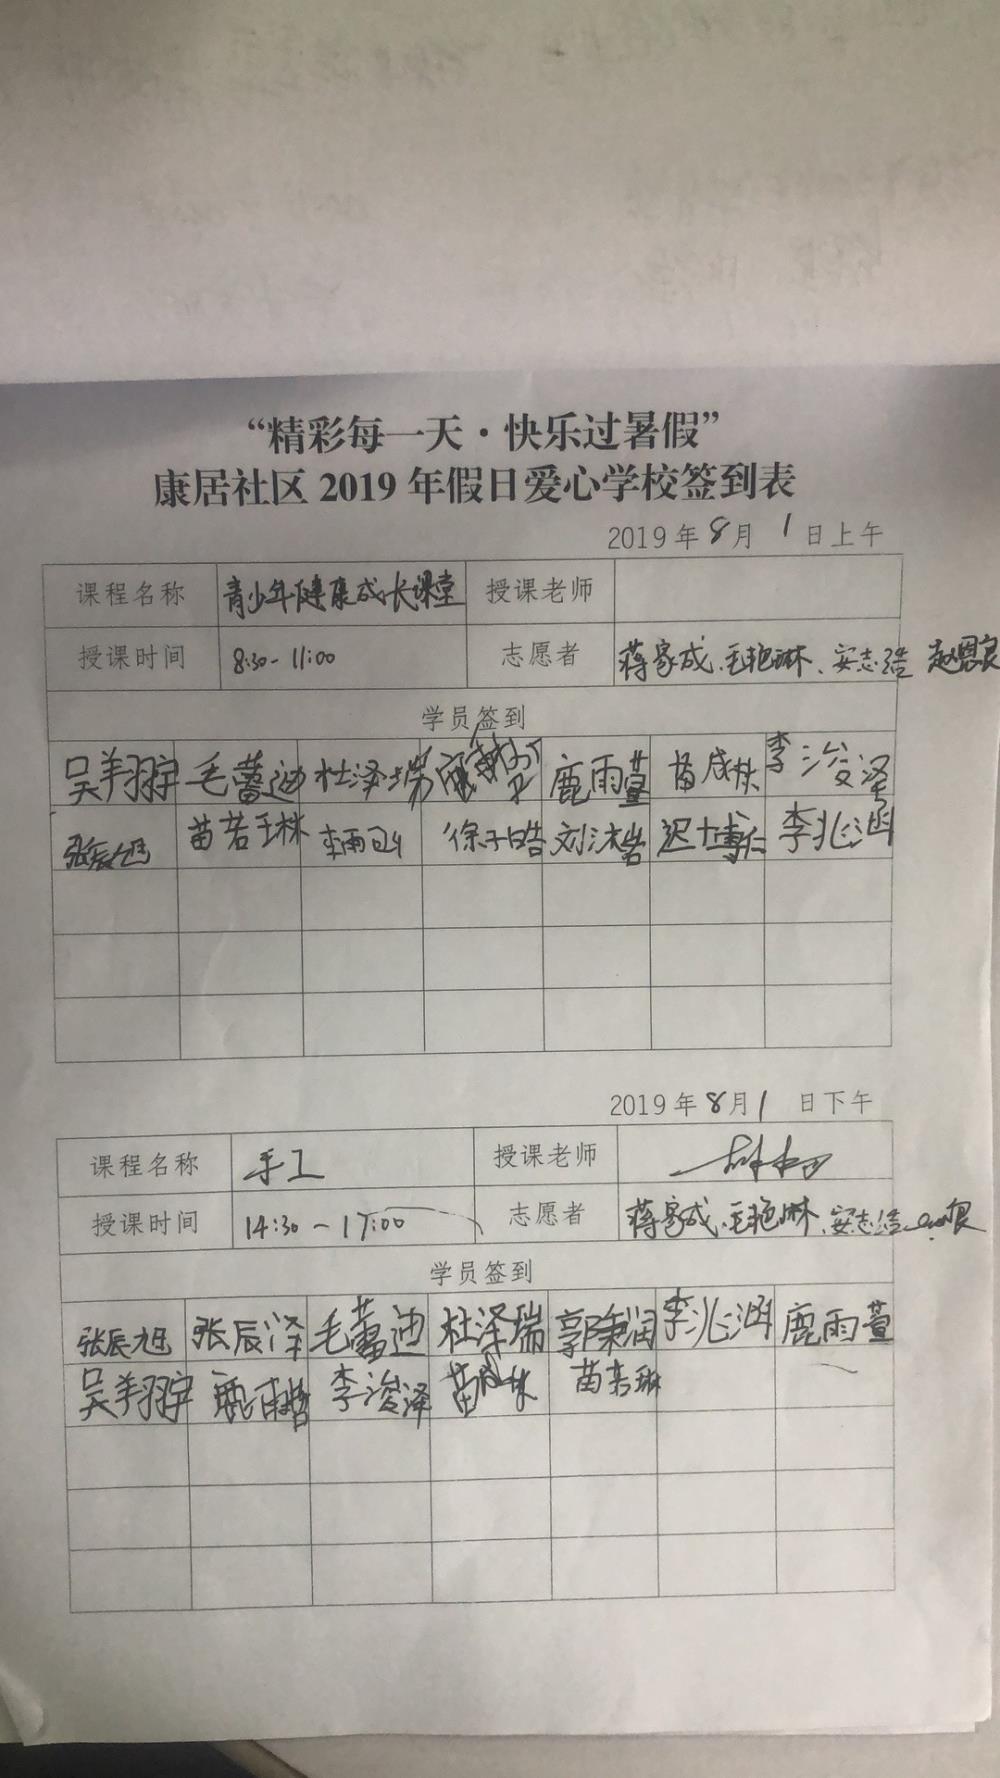 “精彩每一天·快乐过暑假”
康居社区 2019 年假日爱心学校签到表
2019 年 8 月 1 日上午
课程名称 青少年健康成长课堂 授课老师
授课时间 8:30-11:00 志愿者 蒋家成、毛艳琳、安志浩 赵恩良
学员签到
吴羊翔宇 毛蕾迪 杜泽瑞 鹿雨萱 苗成林 李浚泽
张辰旭 苗若琳 徐子皓 刘沐岩 迟博仁 李兆涵
2019 年 8 月 1 日下午
课程名称 手工 授课老师
授课时间 14:30-17:00 志愿者 蒋家成、毛艳琳、安志浩
学员签到
张辰旭 张辰泽 毛蕾迪 杜泽瑞 郭秉润 李兆涵 鹿雨萱
吴羊翔宇 李浚泽 苗成林 苗若琳